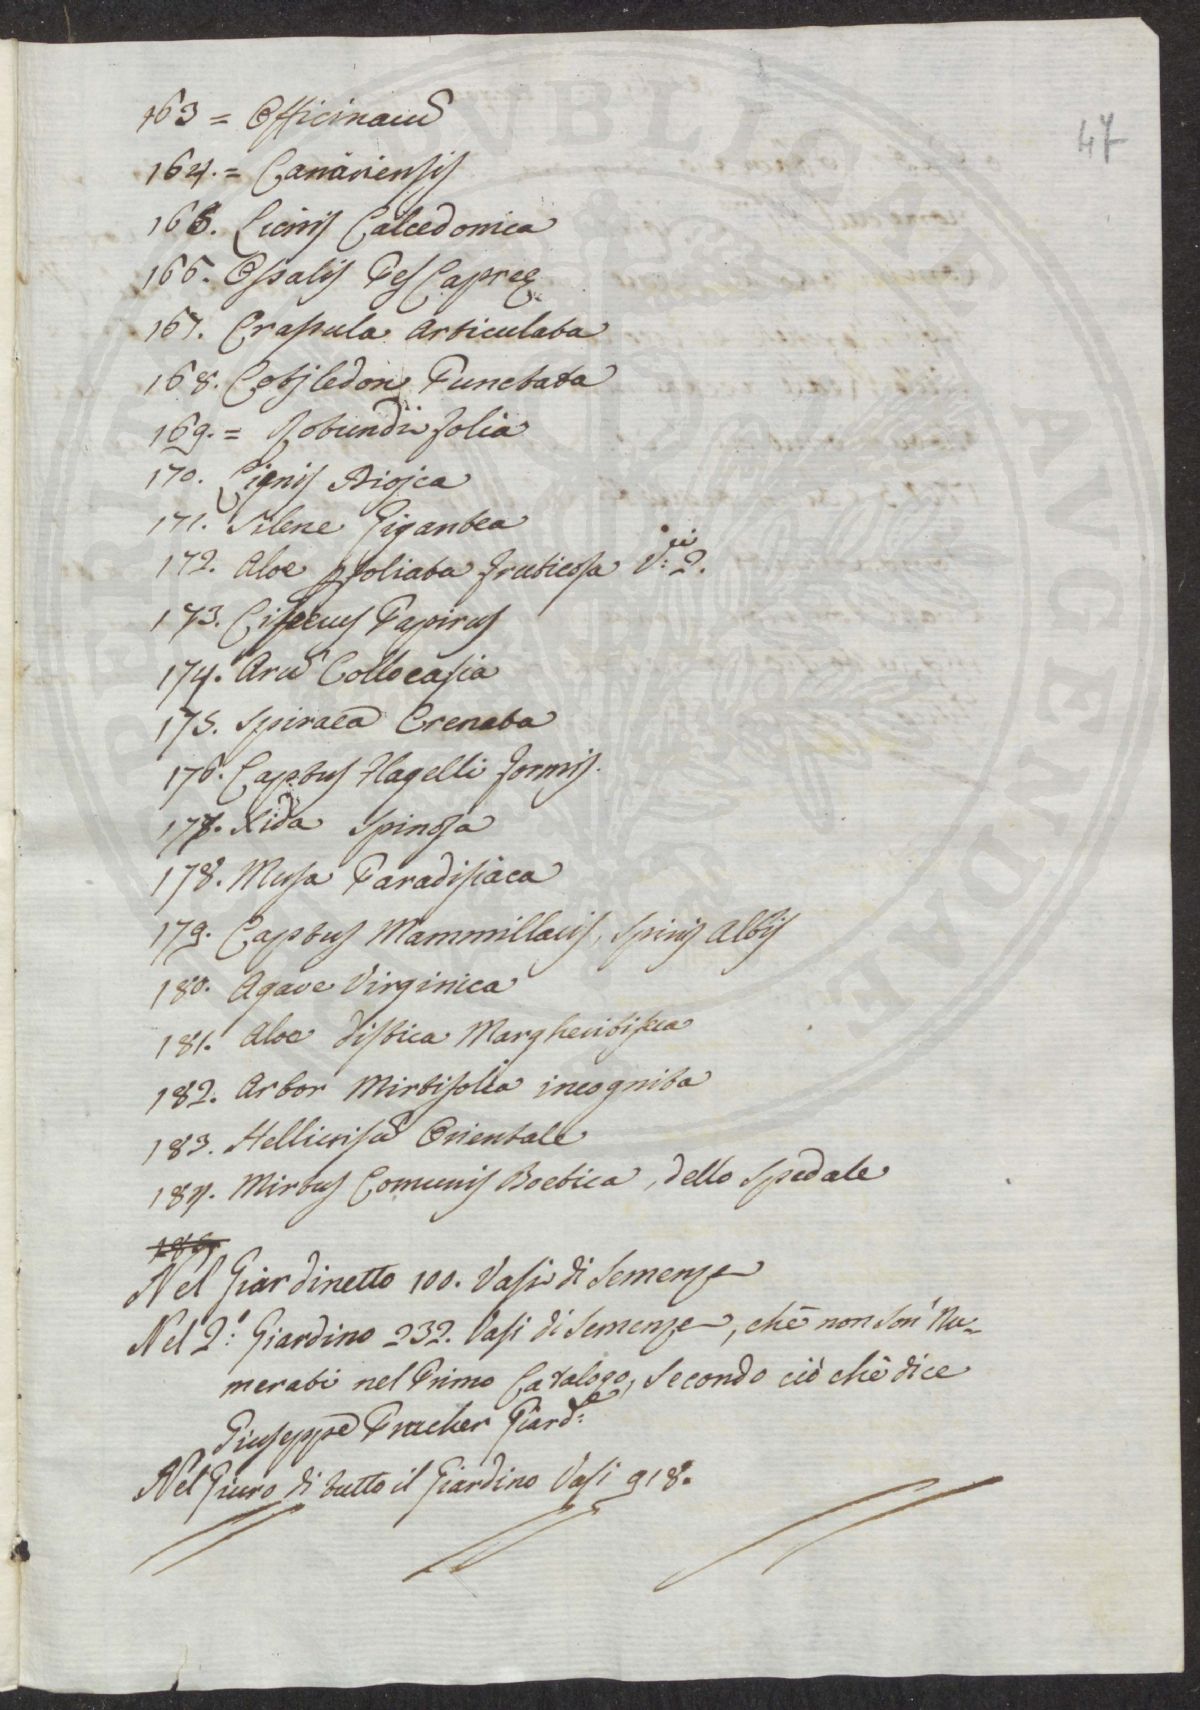 47
163 = Officinarũ
164. = Canariensis
165. Licnis Calcedonica
166. Ossalis Pes Capreę
167. Crassula Articulata
168. Cotyledon Punctata
169. = Rotundi folia
170. Lignis Dioica
171. Silene Gigantea
172. Aloe pfoliata fruticosa V.ⁱ 2.
173. Papirus
174. Arũ Collocasia
175. Spiraea Crenata
176. Cactus Flagelli formis.
177. Sida Spinosa
178. Musa Paradisiaca
179. Cactus Mammillaris, Spinis Albis
180. Agave Virginica
181. Aloe distica Margheritifera
182. Arbor Mirtifolia incognita
183. Hellicrisũ Orientale
184. Mirtus Comunis Boetica, dello Spedale
185
Nel Giardinetto 100. Vasi di Semenze
Nel 2.° Giardino 232. Vasi di Semenze, che non son' Nu-
merati nel Primo Catalogo, Secondo ciò che dice
Giuseppe Giard.ᵉ
Nel Giuro di tutto il Giardino Vasi 918.